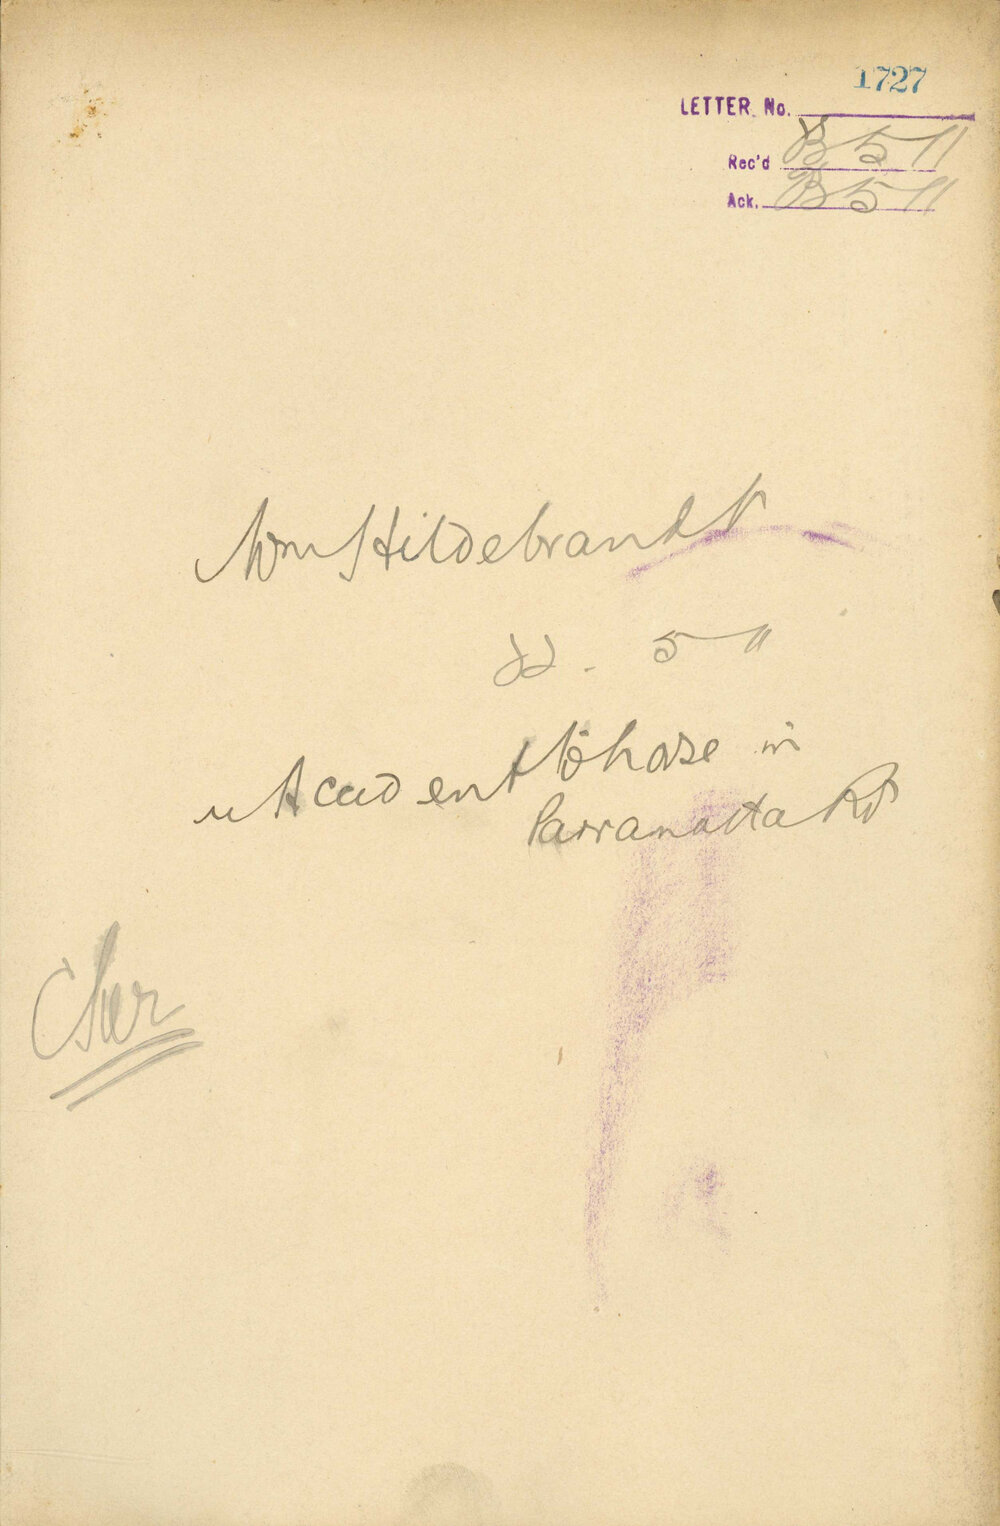 1727
LETTER No.
Rec'd 5 11
Ack. 5 11
Wm Hildebrandt
22 . 5 11
Accident to horse in
Parramatta Rd